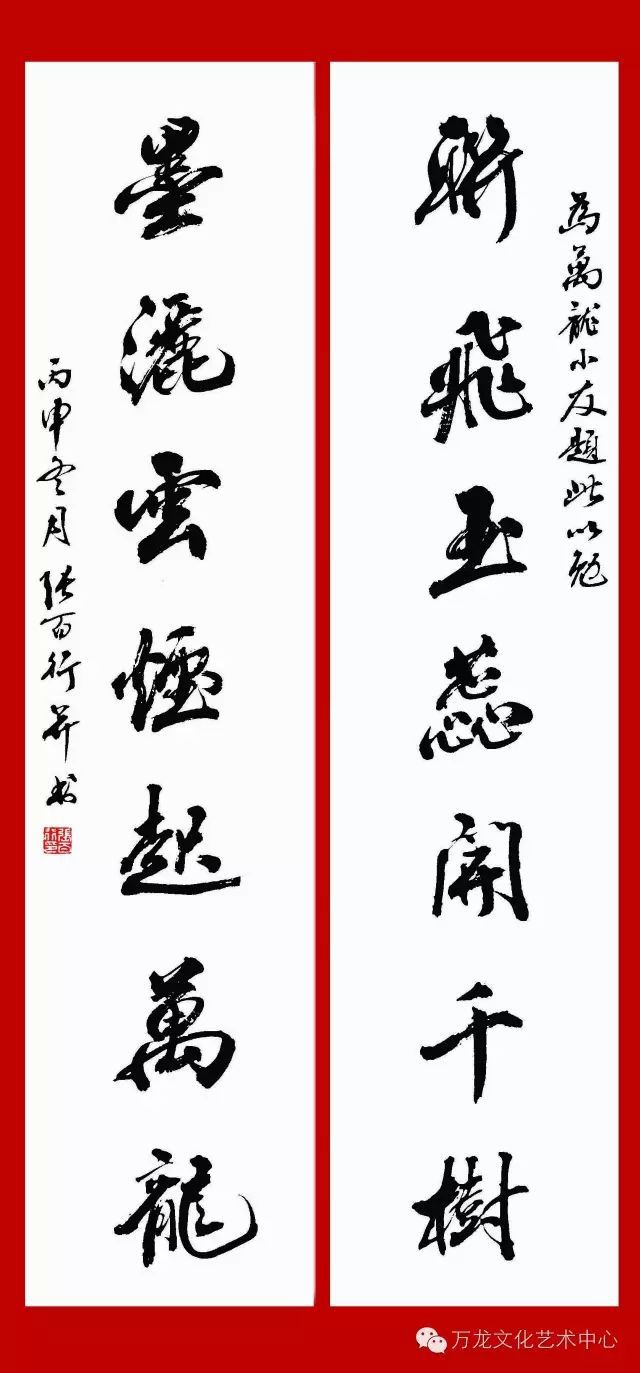 為萬龍小友題此以勉
聯飛玉蕊開千樹
墨灑雲煙起萬龍
丙申冬月張百行并書
万龙文化艺术中心